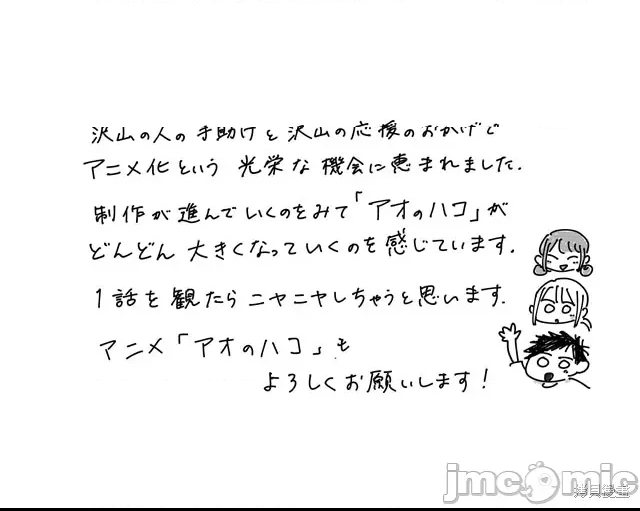 沢山の人の手助けと沢山の応援のおかげで
アニメ化という光栄な機会に恵まれました.
制作が進んでいくのをみて「アオのハコ」が
どんどん大きくなっていくのを感じています.
1話を観たらニヤニヤしちゃうと思います.
アニメ「アオのハコ」も
よろしくお願いします!
jmcomic